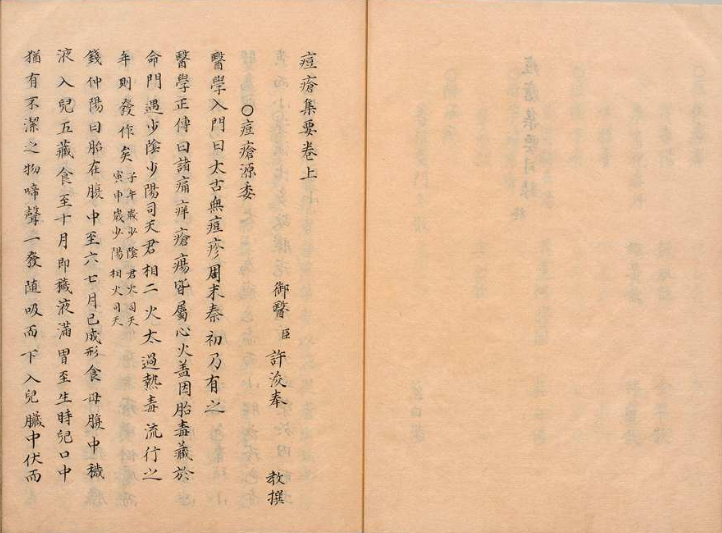 痘瘡集要卷上
○痘瘡源委
御醫臣許浚奉 教撰
醫學入門曰太古無痘疹周末秦初乃有之
醫學正傳曰諸痛痒瘡瘍皆屬心火盖因胎毒藏於
命門遇少陰少陽司天君相二火太過熱毒流行之
年則發作矣子午歲少陰君火司天寅申歲少陽相火司天
錢仲陽曰胎在腹中至六七月已成形食母腹中穢
液入兒五藏食至十月即穢液滿胃至生時兒口中
猶有不潔之物啼聲一發隨吸而下入兒臟中伏而